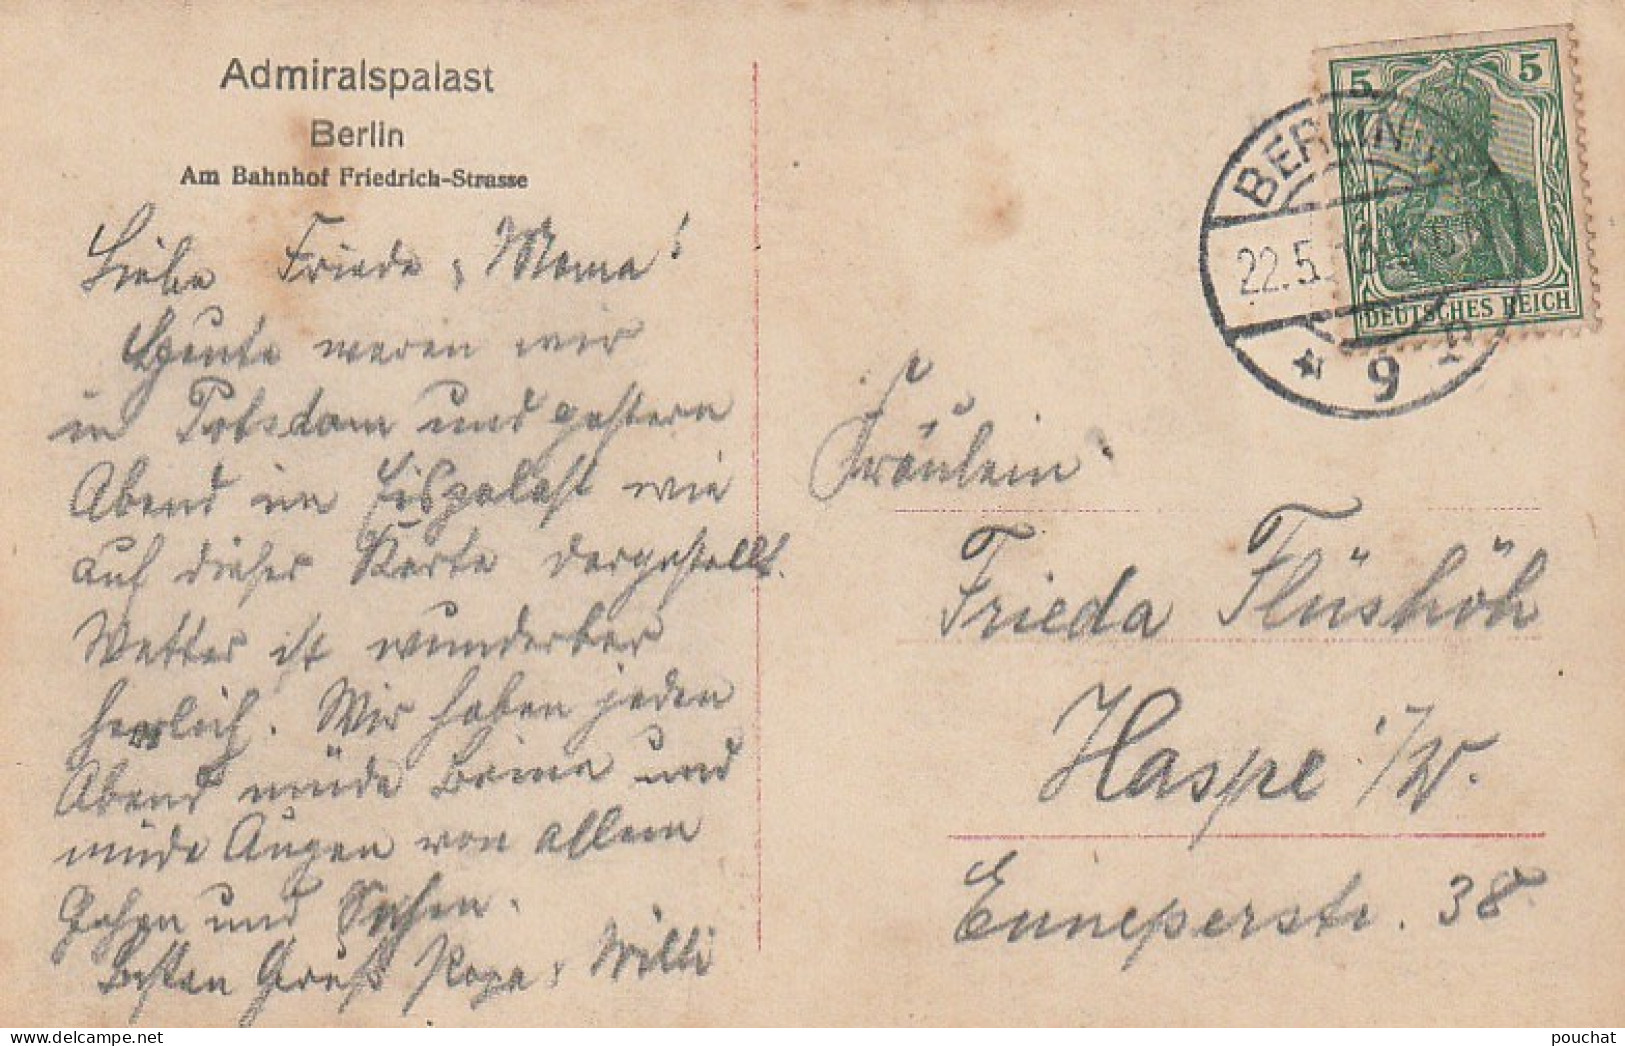 Admiralspalast
Berlin
Am Bahnhof Friedrich-Strasse
Liebe Friede, Mama!
Heute waren wir
in Potsdam und gestern
Abend im Eispalast wie
auf dieser Karte dargestellt.
Wetter ist wunderbar
herrlich. Wir haben jeden
Abend müde Beine und
müde Augen von allem
Gehen und Sehen.
Besten Gruß Papa, Willi
BERLIN
22.5.
9
5 5
DEUTSCHES REICH
Fräulein
Frieda Flüshöh
Haspe i/W.
Enneperstr. 38
pouchat